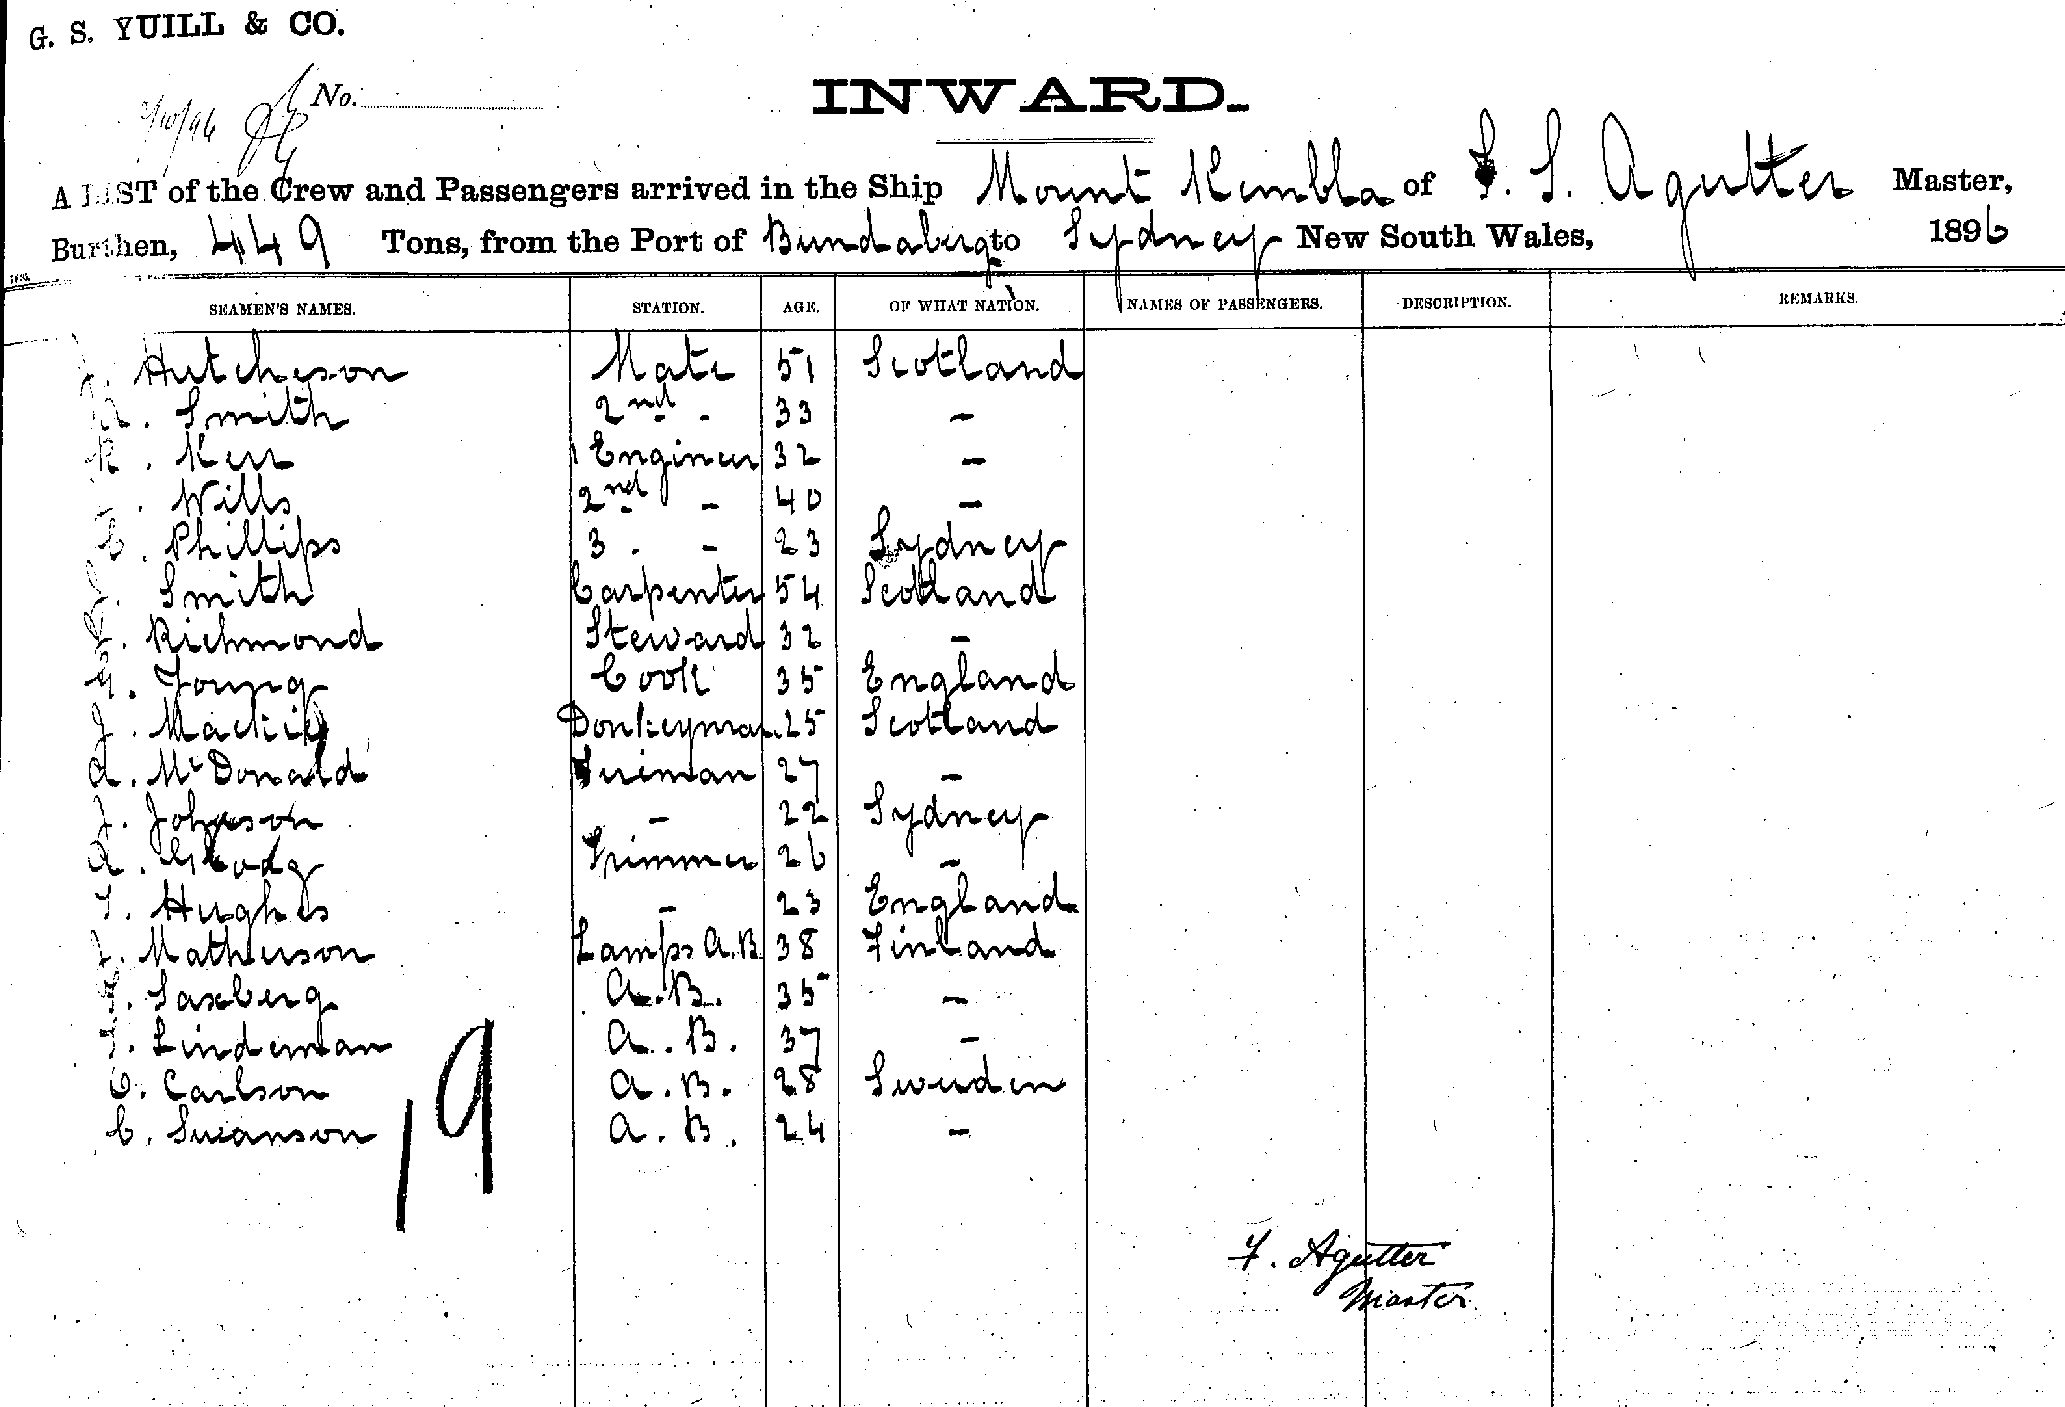 G. S. YUILL & CO.
No.
2/10/96
INWARD.
A LIST of the Crew and Passengers arrived in the Ship Mount Kembla of F. S. Agutter Master,
Burthen, 449 Tons, from the Port of Bundaberg to Sydney New South Wales, 1896
SEAMEN'S NAMES. STATION. AGE. OF WHAT NATION. NAMES OF PASSENGERS. DESCRIPTION. REMARKS.
Hutcheson Mate 51 Scotland
Smith 2nd - 33 -
R. Kerr 1 Engineer 32 -
Wills 2nd - 40 -
C. Phillips 3 - 23 Sydney
Smith Carpenter 54 Scotland
Richmond Steward 32 -
G. Young Cook 35 England
J. Mackie Donkeyman 25 Scotland
A. McDonald Fireman 27 -
J. Johnson - 22 Sydney
A. Trimmer 26 -
T. Hughes - 23 England
J. Matheison Lamps A.B. 38 Finland
Saxberg A.B. 35 -
Lindeman A.B. 37 -
C. Carlson A.B. 28 Sweden
C. Swanson A.B. 24 -
19
F. Agutter
Master